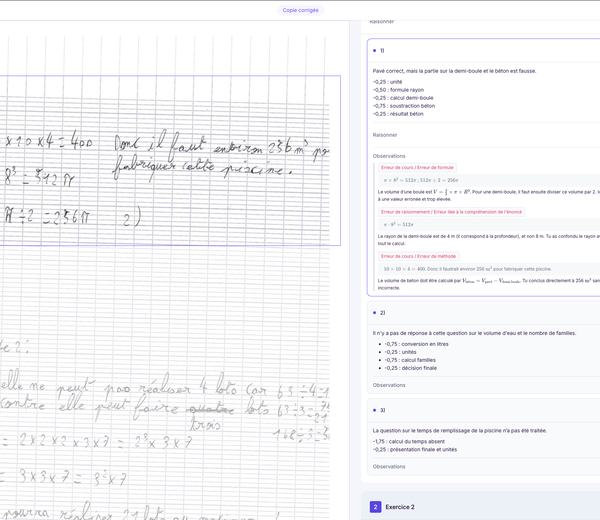 Copie corrigée
Raisonner
1)
Pavé correct, mais la partie sur la demi-boule et le béton est fausse.
-0,25 : unité
-0,50 : formule rayon
-0,25 : calcul demi-boule
-0,75 : soustraction béton
-0,25 : résultat béton
Raisonner
Observations
Erreur de cours / Erreur de formule
π × 8³ = 512π ; 512π ÷ 2 = 256π
Le volume d'une boule est V = × π × R³. Pour une demi-boule, il faut ensuite diviser ce volume par 2.
à une valeur erronée et trop élevée.
Erreur de raisonnement / Erreur liée à la compréhension de l'énoncé
= 512π
Le rayon de la demi-boule est de 4 m (il correspond à la profondeur), et non 8 m. Tu as confondu le rayon
tout le calcul.
Erreur de cours / Erreur de méthode
10 × 10 × 4 = 400. Donc il faudrait environ 256 m³ pour fabriquer cette piscine.
Le volume de béton doit être calculé par Tu conclus directement à 256 m³
incorrecte.
2)
Il n'y a pas de réponse à cette question sur le volume d'eau et le nombre de familles.
-0,75 : conversion en litres
-0,25 : unités
-0,75 : calcul familles
-0,25 : décision finale
Observations
3)
La question sur le temps de remplissage de la piscine n'a pas été traitée.
-1,75 : calcul du temps absent
-0,25 : présentation finale et unités
Observations
2 Exercice 2
×10×4=400 Donc il faut environ 256 m³
8³ = 512π fabriquer cette piscine.
π÷2 = 256π 2)
2:
elle ne peut pas réaliser 4 lots car 63÷4
contre elle peut faire quatre lots 63÷3=
trois
= 2×2×2×3×7 = 2³×3×7
= 3×3×7 = 3²×7
pourra réaliser 21 lots